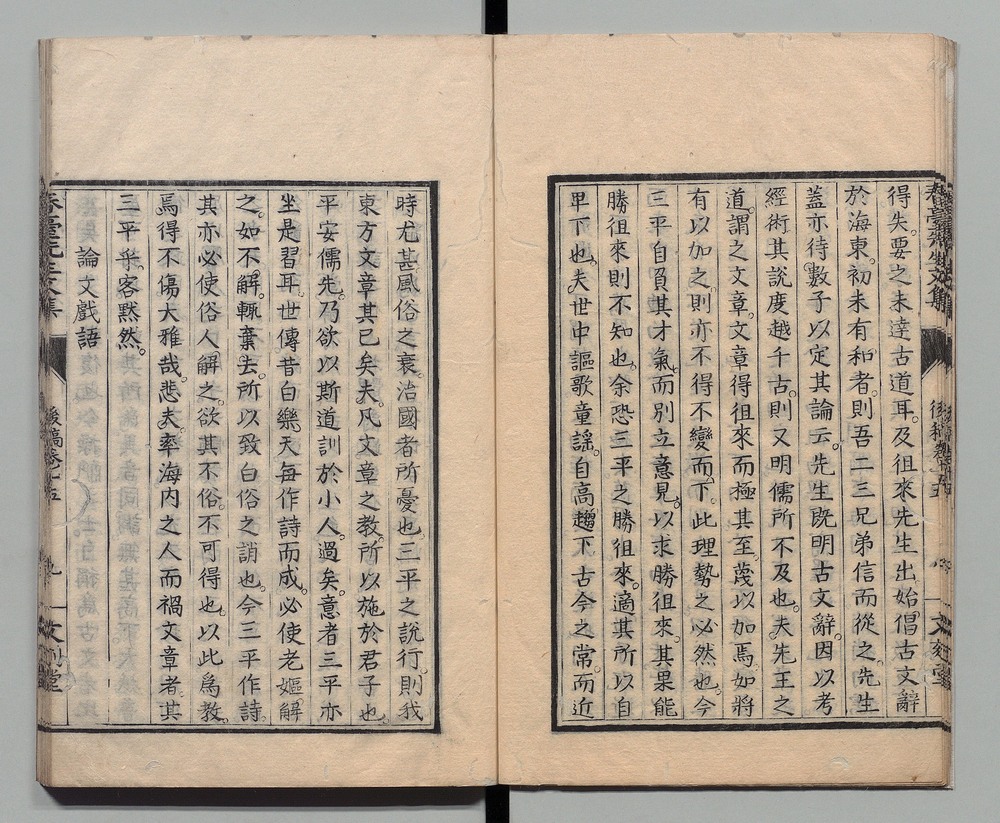 得失。要之未達古道耳。及徂來先生出。始倡古文辭
於海東。初未有和者。則吾二三兄弟信而從之。先生
蓋亦待數子以定其論云。先生既明古文辭。因以考
經術。其說度越千古。則又明儒所不及也。夫先王之
道。謂之文章。文章得徂來而極其至。蔑以加焉。如將
有以加之。則亦不得不變而下。此理勢之必然也。今
三平自負其才氣。而別立意見。以求勝徂來。其果能
勝徂來。則不知也。余恐三平之勝徂來。適其所以自
卑下也。夫世中謳歌童謠。自高趨下。古今之常。而近
時尤甚。風俗之衰。治國者所憂也。三平之說行。則我
東方文章其已矣夫。凡文章之教。所以施於君子也。
平安儒先。乃欲以斯道訓於小人。過矣。意者三平亦
坐是習耳。世傳昔白樂天每作詩而成。必使老嫗解
之。如不解。輒棄去。所以致白俗之誚也。今三平作詩。
其亦必使俗人解之。欲其不俗。不可得也。以此為教。
焉得不傷大雅哉。悲夫。率海內之人而禍文章者。其
三平乎。客默然。
論文戲語
後稿卷十五
九
文刻堂